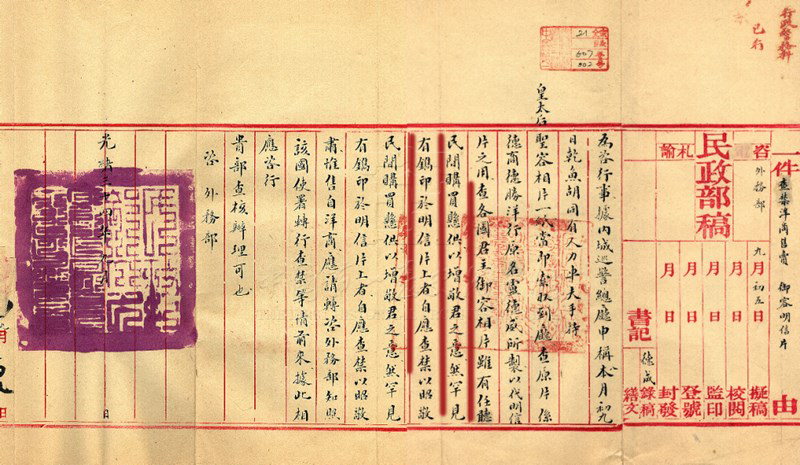 行政警務科
已行
一件
查禁洋商售賣 御容明信片
由
咨
外務部
札
諭
民政部稿
九月初五日擬稿
月 日校閱
月 日監印
月 日登號
月 日封發
書記
錄稿
繕文
21
002
為咨行事據內城巡警總廳申稱本月初九
日乾魚胡同有人力車夫手持
皇太后聖容相片一紙當即索取到廳查原片係
德商德勝洋行原名靈德咸所製以代明信
片之用查各國君主御容相片雖有任聽
民間購買懸供以增敬君之意然罕見
有鐫印於明信片上者自應查禁以昭敬
民間購買懸供以增敬君之意然罕見
有鐫印於明信片上者自應查禁以昭敬
肅惟售自洋商應請轉咨外務部知照
該國使署轉行查禁等情前來據此相
應咨行
貴部查核辦理可也
咨 外務部
光緒三十四年九月 日